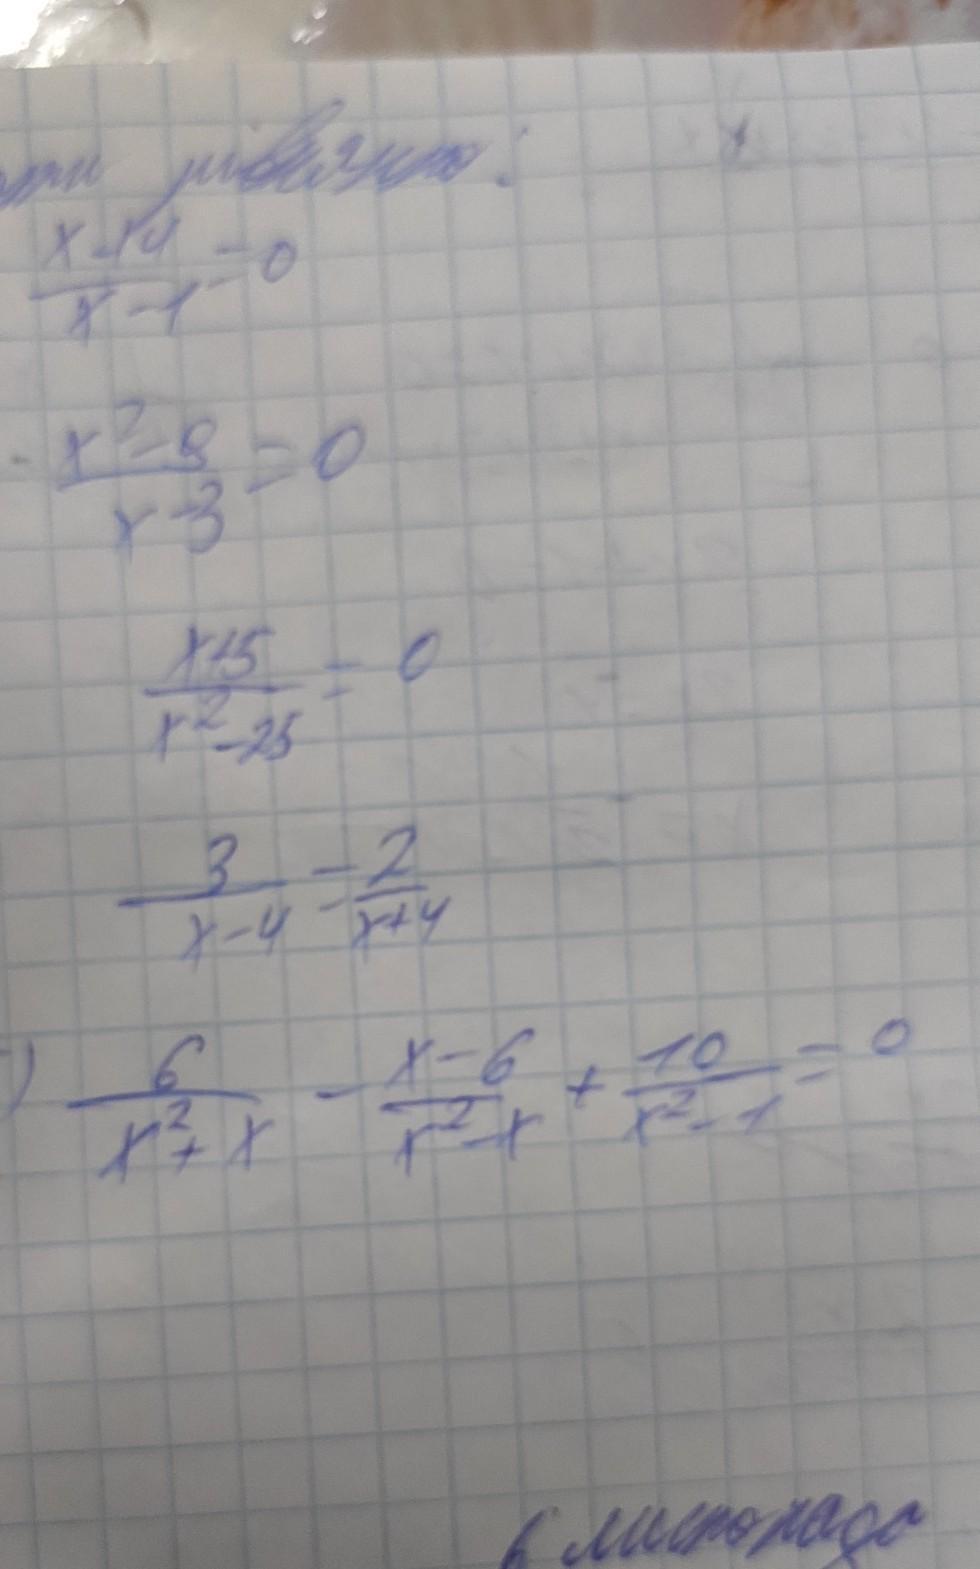 рівняння:
x+4/x-1 = 0
x²-9/x-3 = 0
x+5/x²-25 = 0
3/x-4 = 2/x+4
) 6/x²+x - x-6/x²-x + 10/x²-1 = 0
6 листопада